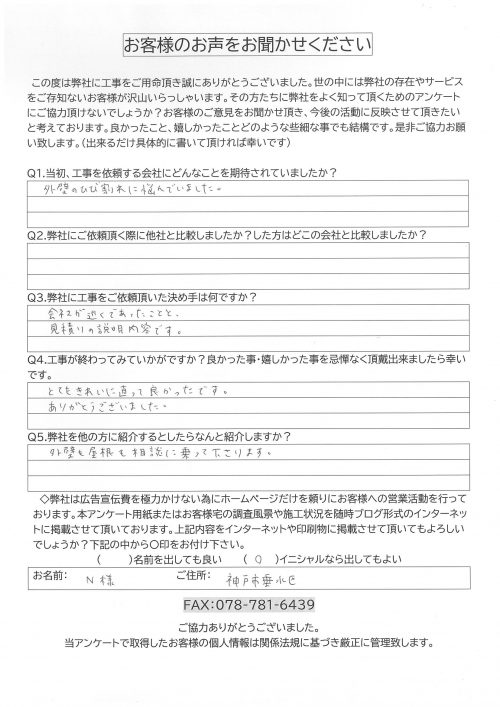 お客様のお声をお聞かせください
この度は弊社に工事をご用命頂き誠にありがとうございました。世の中には弊社の存在やサービス
をご存知ないお客様が沢山いらっしゃいます。その方たちに弊社をよく知って頂くためのアンケート
にご協力頂けないでしょうか？お客様のご意見をお聞かせ頂き、今後の活動に反映させて頂きたい
と考えております。良かったこと、嬉しかったことどのような些細な事でも結構です。是非ご協力お願
い致します。（出来るだけ具体的に書いて頂ければ幸いです）
Q1.当初、工事を依頼する会社にどんなことを期待されていましたか？
外壁のひび割れに悩んでいました。
Q2.弊社にご依頼頂く際に他社と比較しましたか？した方はどこの会社と比較しましたか？
Q3.弊社に工事をご依頼頂いた決め手は何ですか？
会社が近くであったことと、
見積りの説明内容です。
Q4.工事が終わってみていかがですか？良かった事・嬉しかった事を忌憚なく頂戴出来ましたら幸い
です。
とてもきれいに直って良かったです。
ありがとうございました。
Q5.弊社を他の方に紹介するとしたらなんと紹介しますか？
外壁も屋根も相談に乗って下さります。
◇弊社は広告宣伝費を極力かけない為にホームページだけを頼りにお客様への営業活動を行って
おります。本アンケート用紙またはお客様宅の調査風景や施工状況を随時ブログ形式のインターネッ
トに掲載させて頂いております。上記内容をインターネットや印刷物に掲載させて頂いてもよろしい
でしょうか？下記の中から〇印をお付け下さい。
（　　）名前を出しても良い　（ 〇 ）イニシャルなら出してもよい
お名前：　N 様　ご住所：　神戸市垂水区
FAX：078-781-6439
ご協力ありがとうございました。
当アンケートで取得したお客様の個人情報は関係法規に基づき厳正に管理致します。